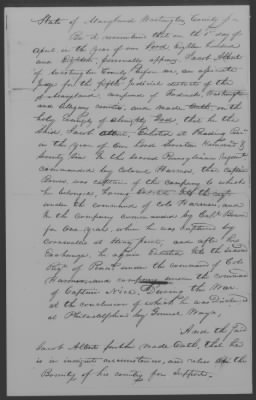 State of Maryland Washington County ss
Be it remembered that on the 1st day of
April in the year of our Lord Eighteen hundred
and Eighteen, personally appears, Jacob Albert
of Washington County before me, an associate
Judge for the fifth Judicial district of the
S Maryland, composed of Frederick, Washington
and Allegany counties, and made Oath on the
holy Evangely of Almighty God, that he the
said Jacob Albert, Enlisted at Reading
in the year of our Lord Seventeen Hundred &
Seventy Six. In the Second Pennsylvania Regiment
commanded by Colonel Harmer, that Captain
was captain of the company to which
he belonged,
under the command of Colo Harmer, and
in the company commanded by Capt
for one year, when he was captured by
Cornwallis at and after his
Exchange, he again Enlisted into the Second
Regt of Pennsa under the command of Colo
Harmer, and company under the command
of Captain During the War
at the conclusion of which he was Discharged
at Philadelphia by General Wayn,
And the said
Jacob Albert further made Oath, that he
is in indigent circumstances, and relies upon the
Bounty of his country for support.